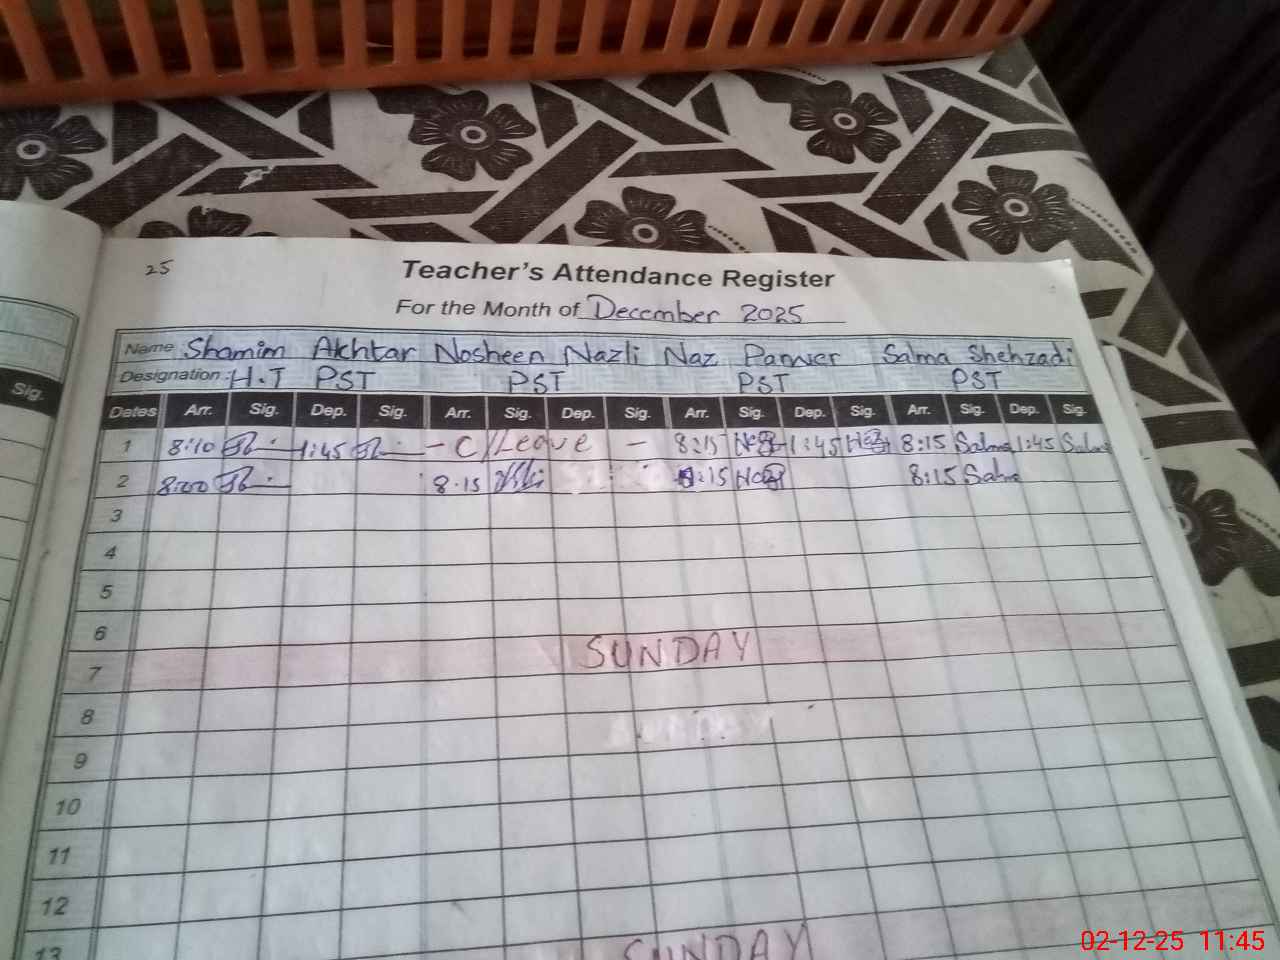 25
Teacher's Attendance Register
For the Month of December 2025
Name Shamim Akhtar Nosheen Nazli Naz Parveer Salma Shehzadi
Designation: H.T PST PST PST PST
Sig.
Dates Arr. Sig. Dep. Sig. Arr. Sig. Dep. Sig. Arr. Sig. Dep. Sig. Arr. Sig. Dep. Sig.
1 8:10 1:45 - C/Leave - 8:15 Naz 1:45 Naz 8:15 Salma 1:45 Salma
2 8:00 8:15 8:15 Naz 8:15 Salma
3
4
5
6
7 SUNDAY
8
9
10
11
12
13 SUNDAY
02-12-25 11:45